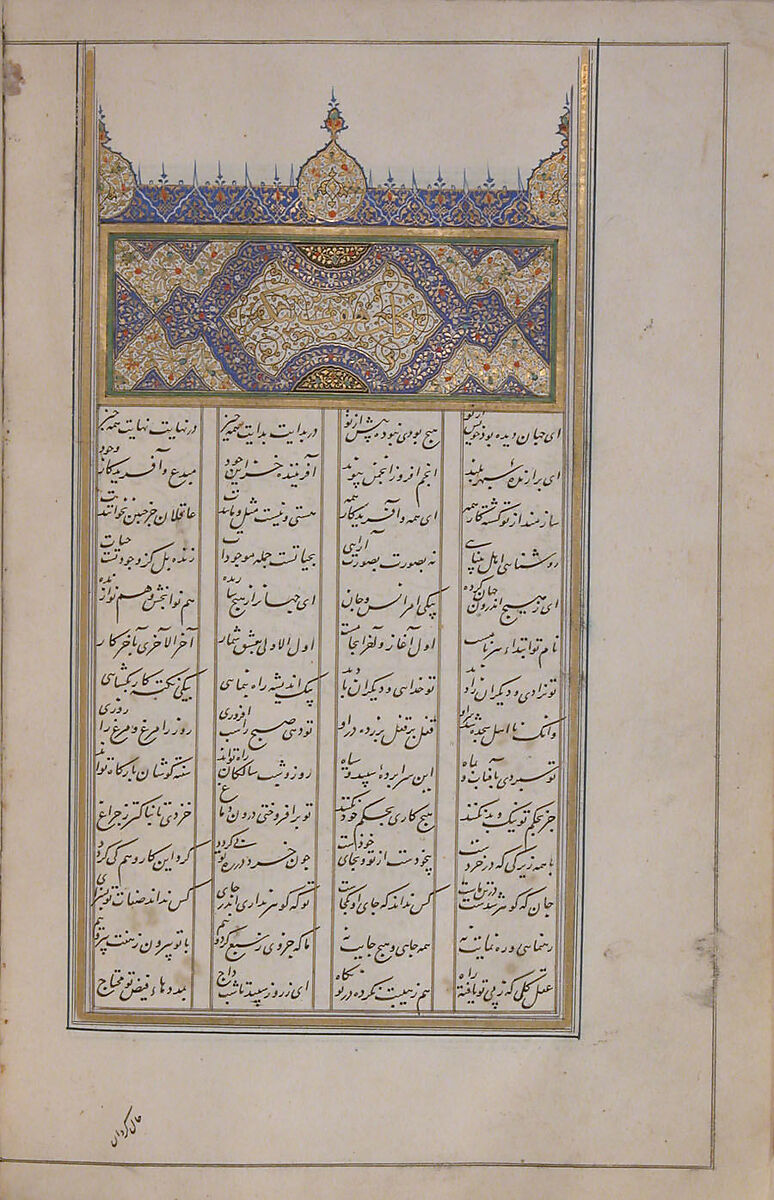 ای جهان دیده بود خویش از تو هیچ بودی نبوده پیش از تو در بدایت بدایت همه چیز در نهایت نهایت همه چیز
ای برآرنده سپهر بلند انجم افروز انجمن پیوند آفریننده خزاین جود مبدع و آفریدگار وجود
سازمند از تو گشته کار همه ای همه و آفریدگار همه هستی و نیست مثل و مانندت عاقلان جز چنین نخوانندت
اهل بینایی نه بصورت بصورت آرایی بحیاتست جمله موجودات زنده بلک از وجود تست حیات
ای ز هیچ اندرون جهان کرده انس و جان ای جهان را ز هیچ سازنده هم نوا بخش هم نوازنده
نام تو ابتداء هر نامست اول آغاز و آخر انجامست اول الاولی شمار آخر الآخری بآخر کار
تو نزادی و دیگران زادند تو خدایی و دیگران بادند بیک اندیشه راه بنمایی بیکی نکته کار بگشایی
وانک نا اهل سجده شد سر او قفل بر قفل بر زده در او تو دهی صبح را شب افروزی روز را مرغ و مرغ را روزی
تو سپردی بآفتاب و ماه این سراپرده سپید و سیاه روز و شب سالکان راه تواند سفته گوشان بارگاه تواند
جز بحکم تو نیک و بد نکنند هیچ کاری بحکم خود نکنند تو برافروختی درون دماغ خردی تابناکتر ز چراغ
با همه زیرکی که در خردست بیخودست از تو و بجای خودست چون خرد در ره تو پی گردد گرد این کار وهم کی گردد
جان که گوهر شدست در تن ماست کس نداند که جای او کجاست تو که گوهر نداری اندر جای کس نداند صفات تو
رهنمایی و رهنمایت نه همه جایی و هیچ جایت نه ما که جزوی ز سبع گردونیم با تو بیرون ز هفت بیرونیم
عقل کلی که از تو یافته راه هم ز هیبت نکرده در تو نگاه ای ز روز سپید تا شب داج بمددهاء فیض تو محتاج
حال گردان